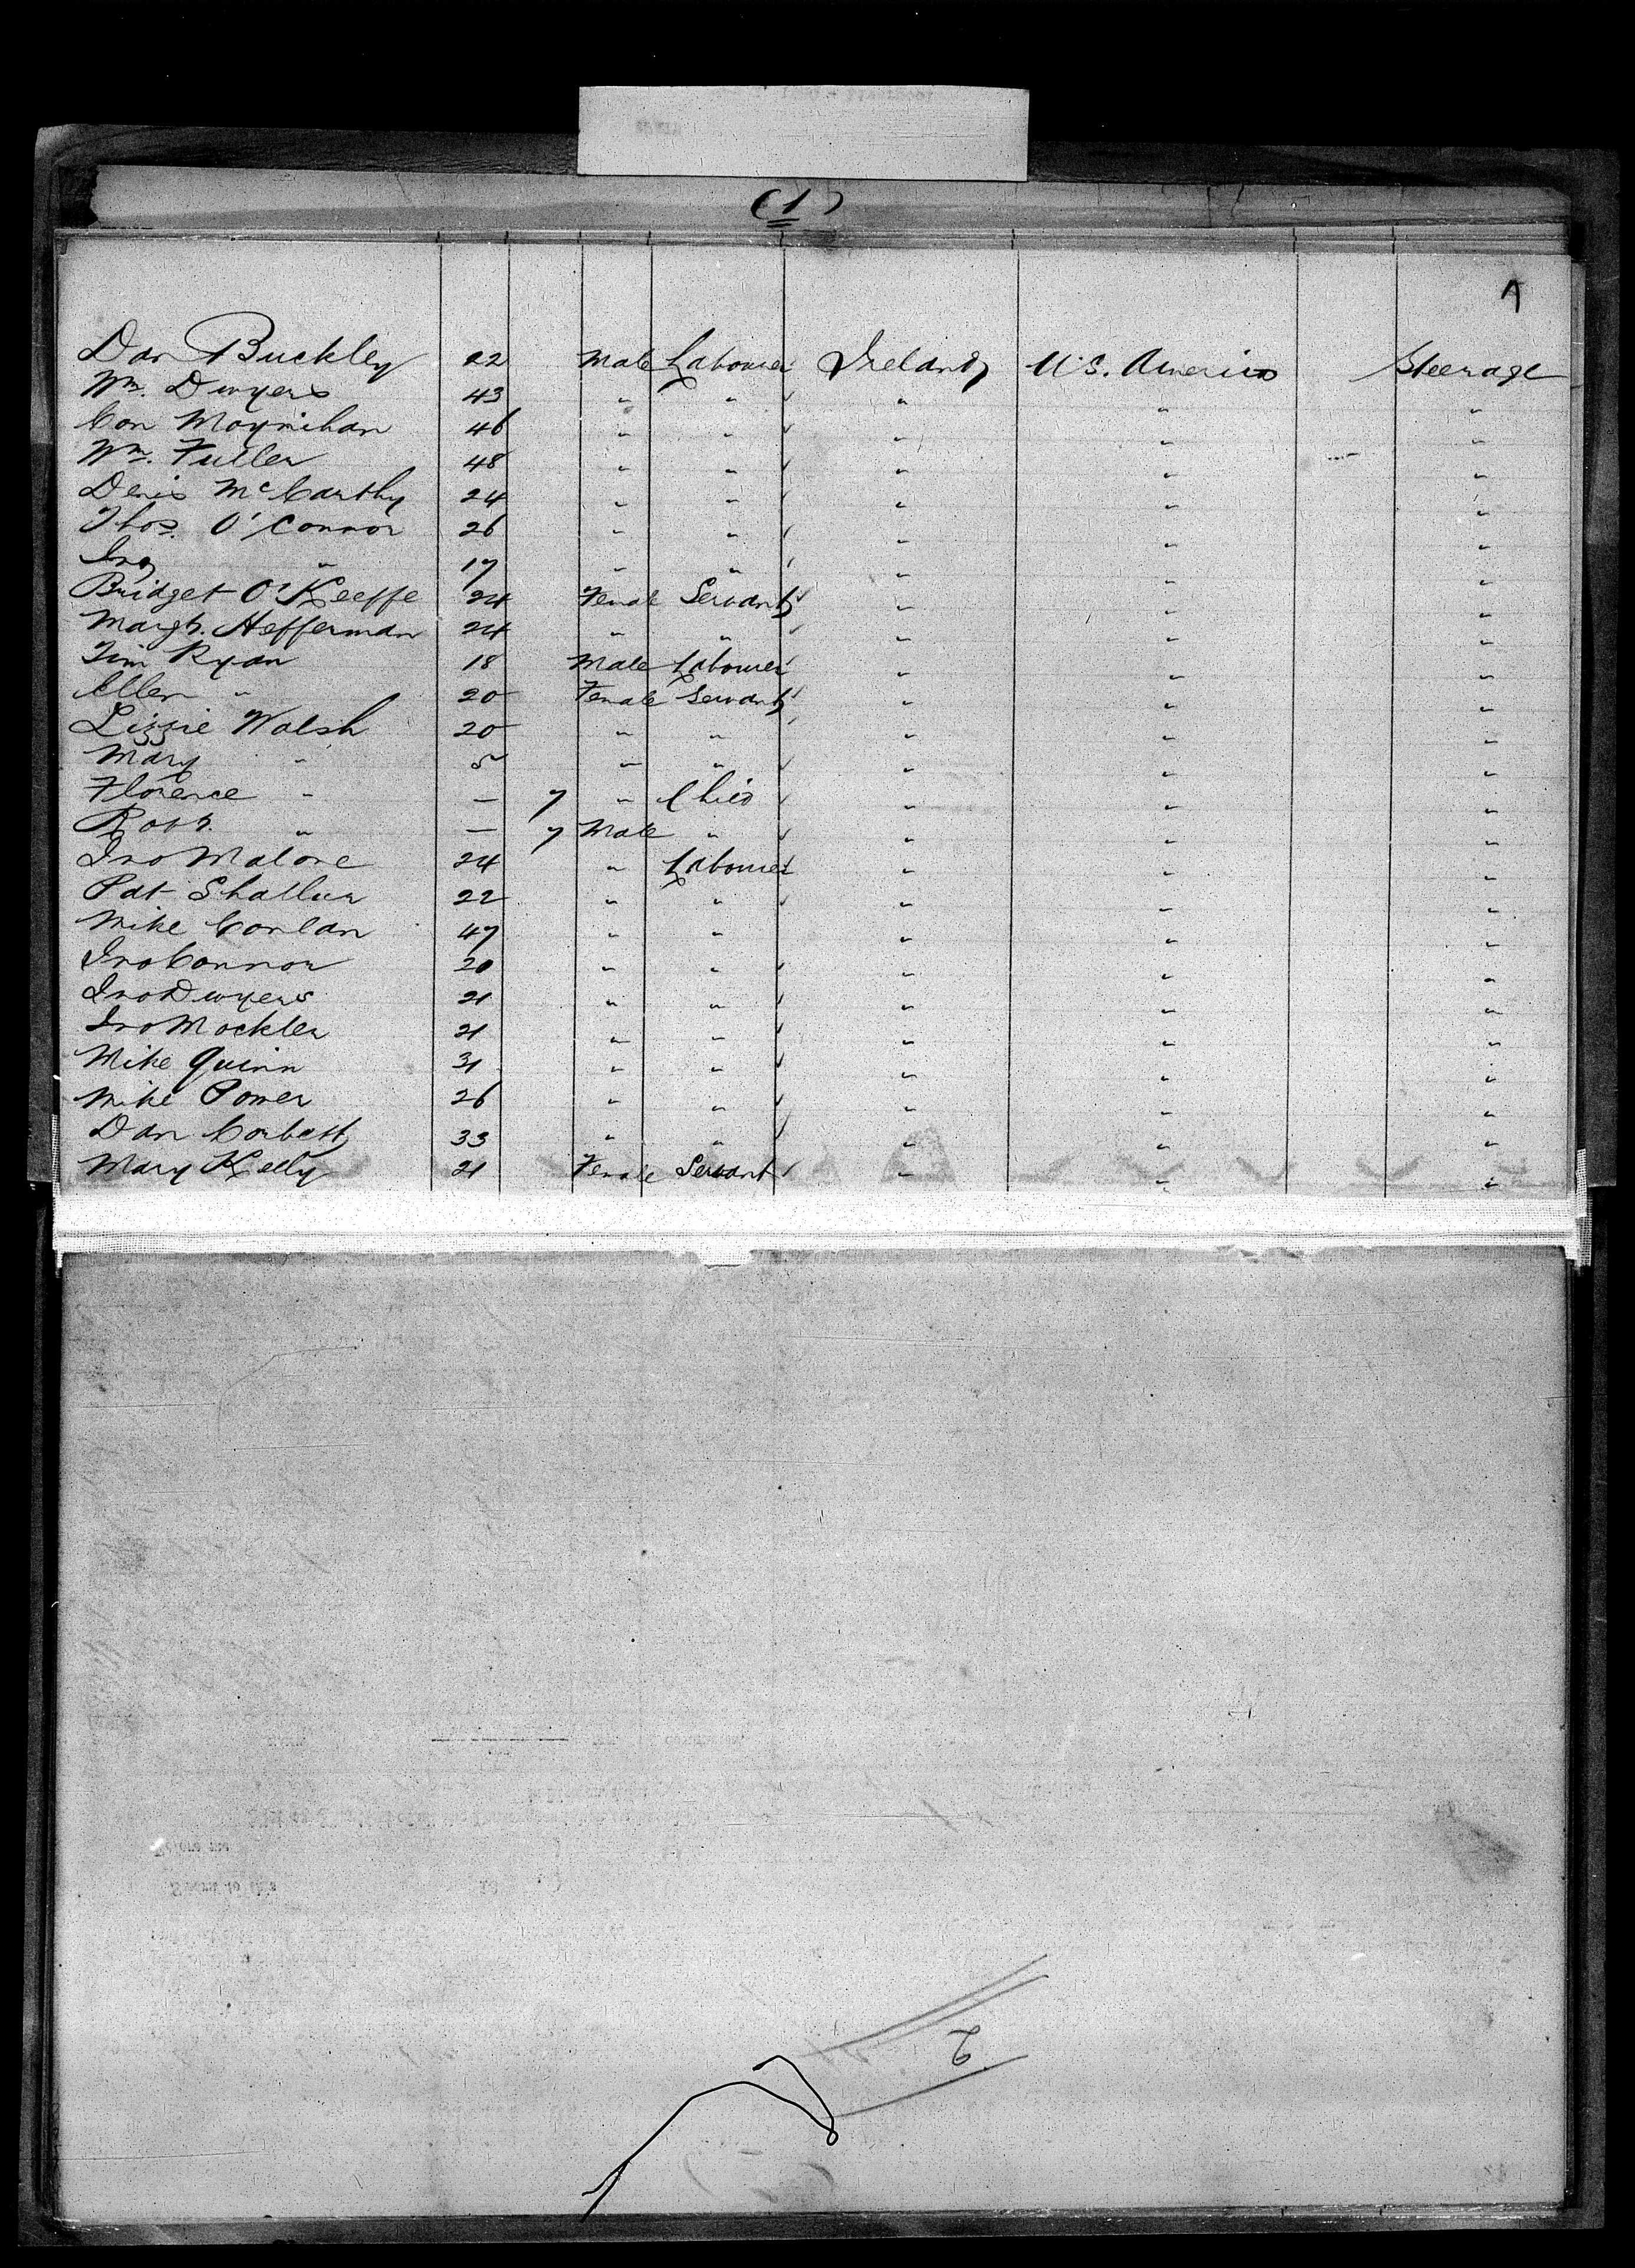 (1)
Dan Buckley 22 Male Labourer Ireland U.S. America Steerage
Wm. Dwyers 43 " " " " "
Con Moynihan 46 " " " " "
Wm. Fuller 48 " " " " "
Denis McCarthy 24 " " " " "
Thos. O'Connor 26 " " " " "
Jno " 17 " " " " "
Bridget O'Keeffe 24 Female Servant " " "
Margt. Hefferman 24 " " " " "
Tim Ryan 18 Male Labourer " " "
Ellen " 20 Female Servant " " "
Lizzie Walsh 20 " " " " "
Mary " 5 " " " " "
Florence " — 7 " Child " " "
Robt. " — 7 Male " " " "
Jno Malone 24 " Labourer " " "
Pat 22 " " " " "
Mike Conlan 47 " " " " "
Jno Connor 20 " " " " "
Jno Dwyers 21 " " " " "
Jno Mockler 21 " " " " "
Mike Quinn 31 " " " " "
Mike Power 26 " " " " "
Dan Corbett 33 " " " " "
Mary Kelly 21 Female Servant " " "